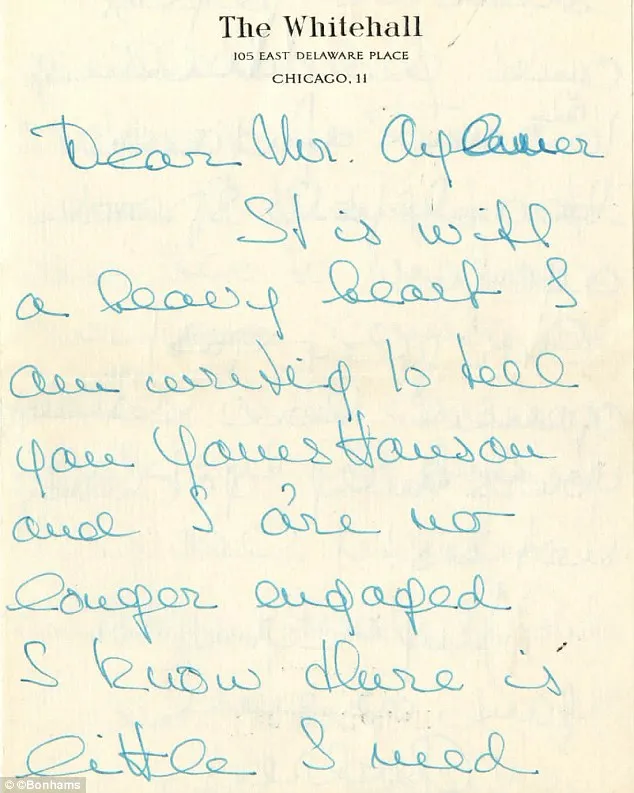 The Whitehall
105 EAST DELAWARE PLACE
CHICAGO, 11
Dear Mr.
It is with
a heavy heart I
am writing to tell
you James Hanson
and I are no
longer engaged
I know there is
little I need
© ©Bonhams